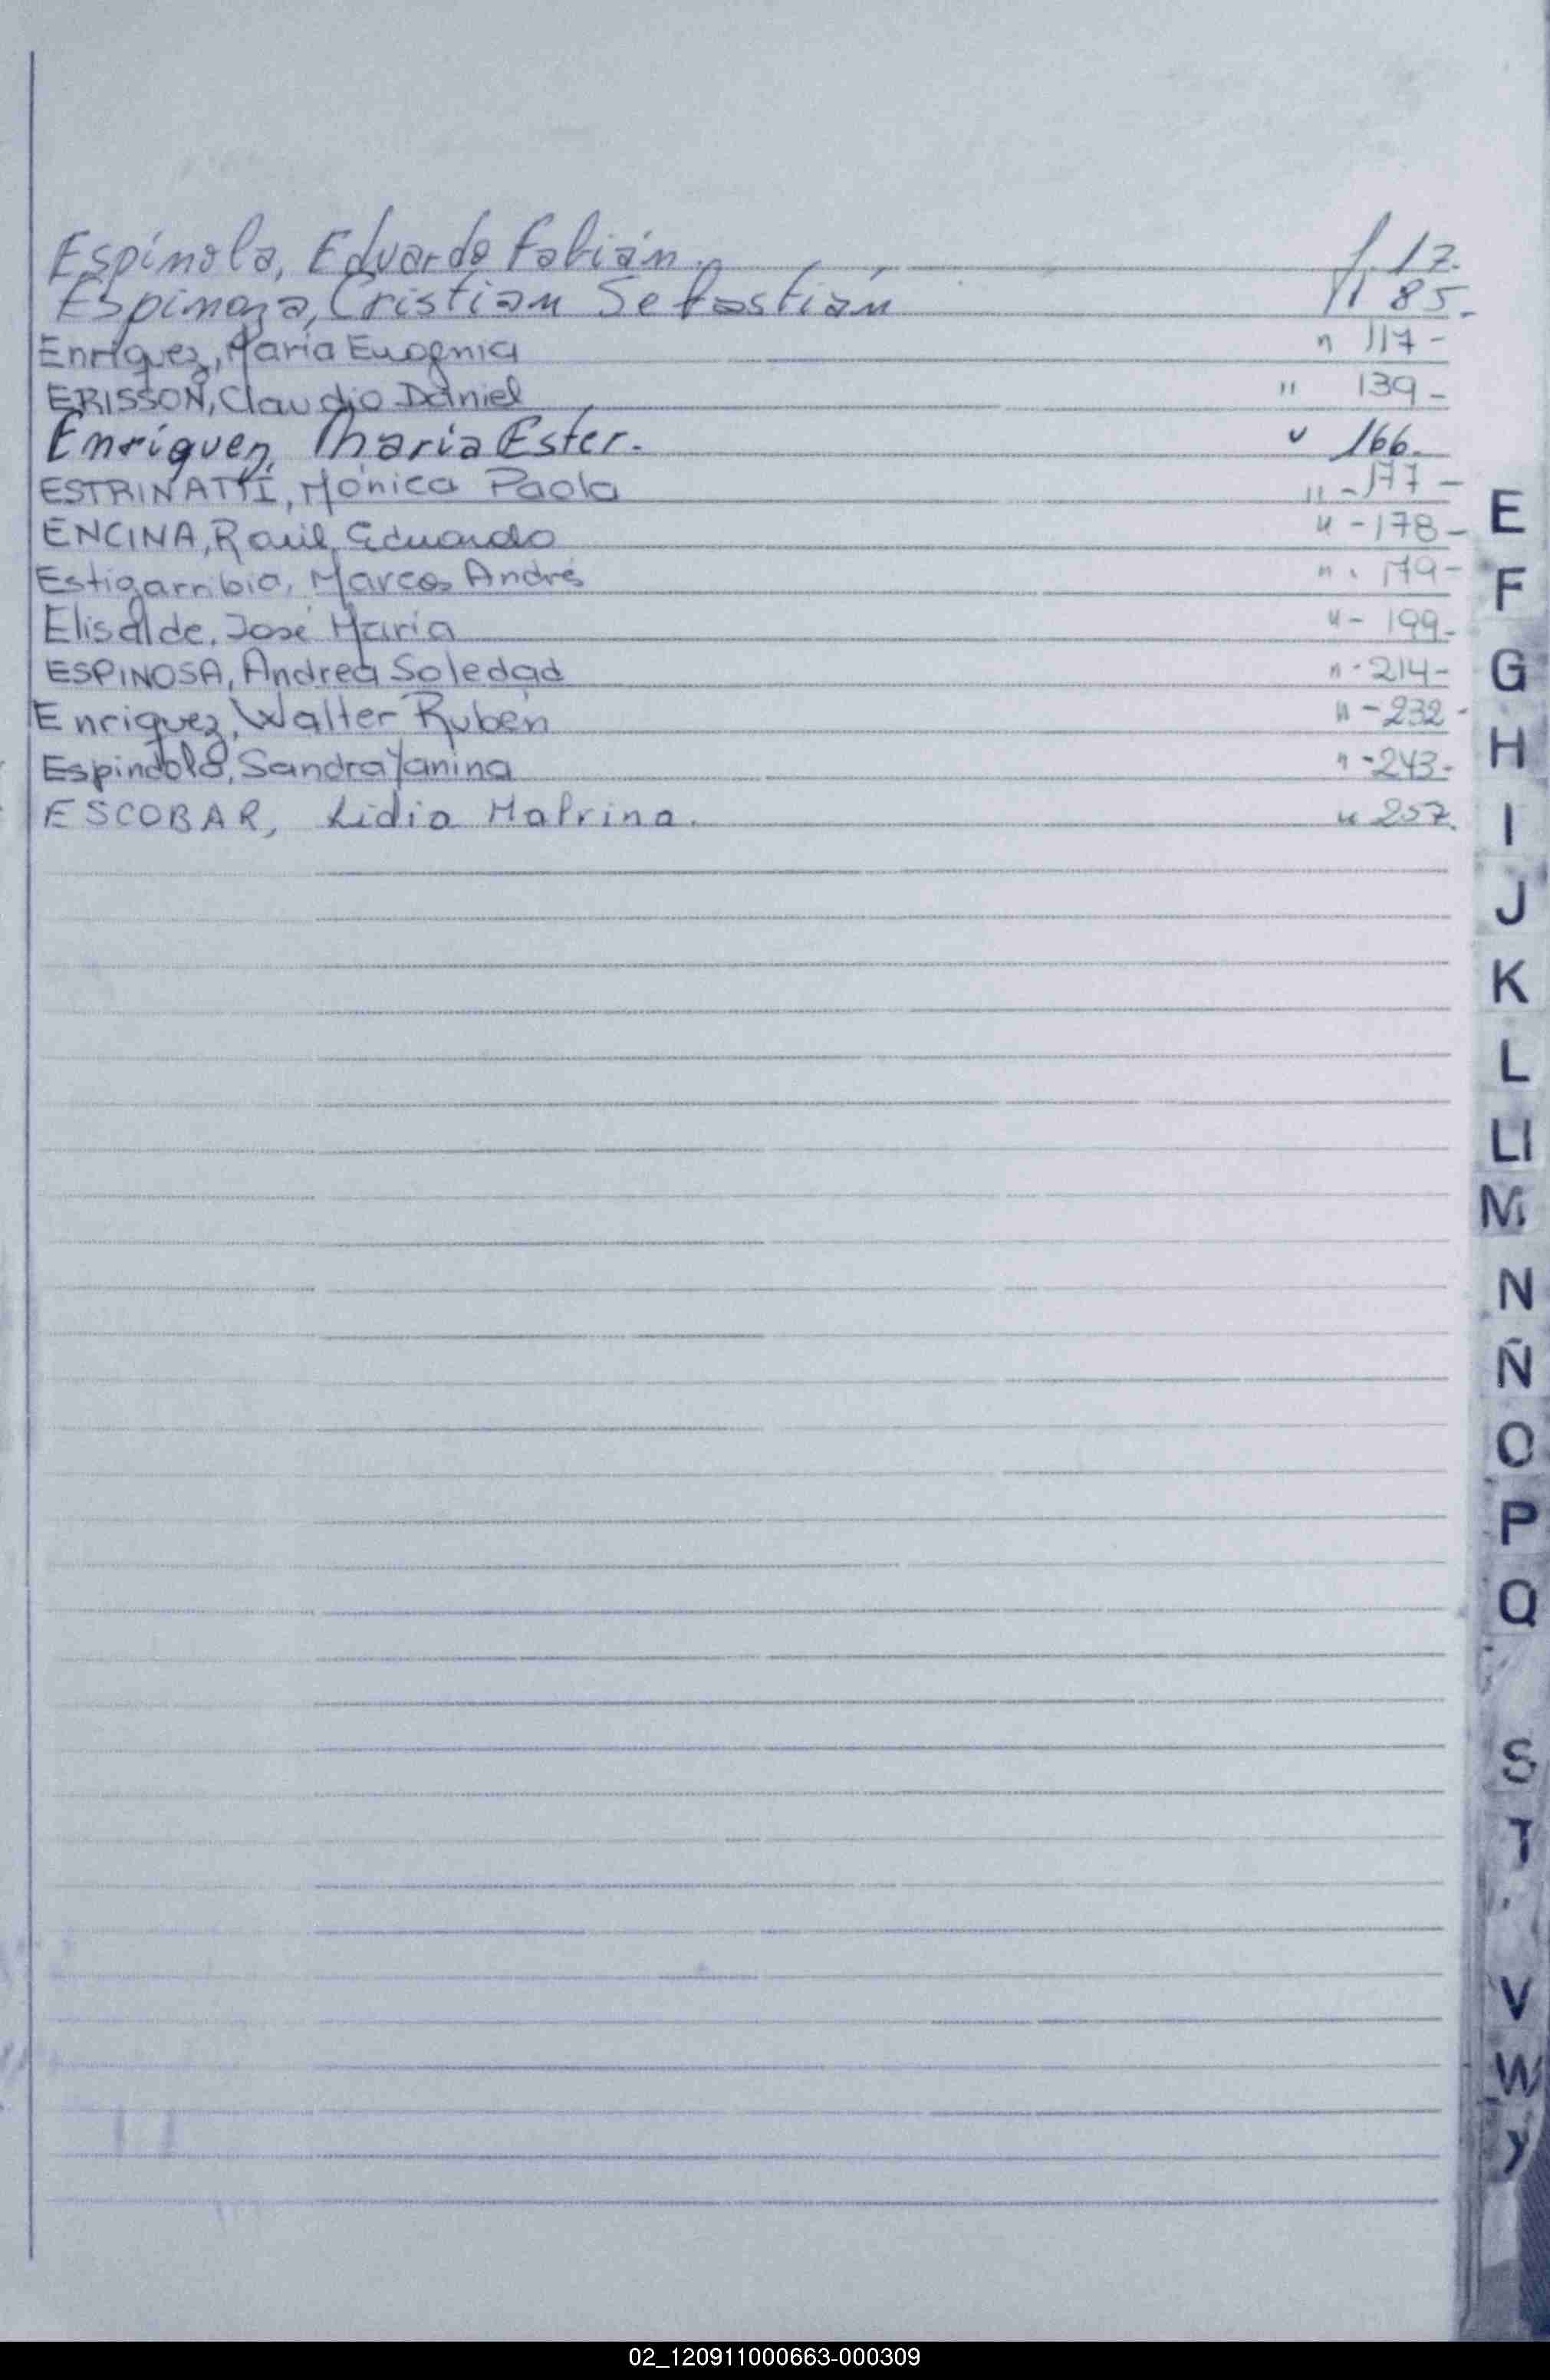 Espínola, Eduardo Fabián. f. 17.
Espinoza, Cristian Sebastián " 85.
Enriquez, María Eugenia " 117-
ERISSON, Claudio Daniel " 139-
Enríquez, Maria Ester. " 166.
ESTRINATTI, Mónica Paola " -177-
ENCINA, Raúl Eduardo " -178-
Estigarribia, Marcos Andrés " . 179-
Elisalde, José María " - 199-
ESPINOSA, Andrea Soledad " -214-
Enriquez, Walter Rubén " -232-
Espindola, Sandra Yanina " -243-
ESCOBAR, Lidia Mabrina. " 257.
E
F
G
H
I
J
K
L
Ll
M
N
Ñ
O
P
Q
S
T
V
W
Y
02_120911000663-000309